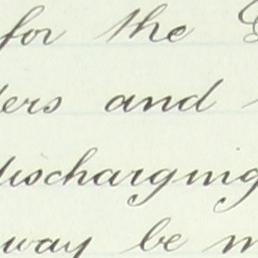 for the
and
discharging
way be